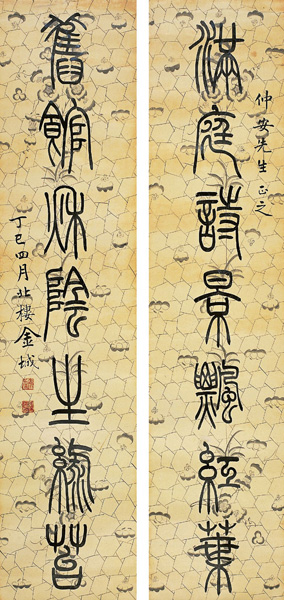 仲安先生正之
滿庭詩景飄紅葉
舊館秋陰生綠苔
丁巳四月北樓金城